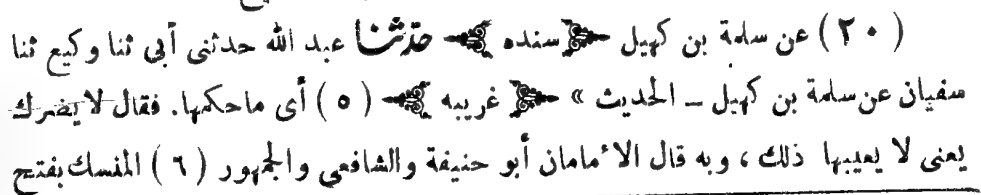 (٢٠) عن سلمة بن كهيل ﴿سنده﴾ حدّثنا عبد الله حدثنى أبى ثنا وكيع ثنا
سفيان عن سلمة بن كهيل ــ الحديث » ﴿غريبه﴾ (٥) أى ماحكمها. فقال لايضرك
يعنى لا يعيبها ذلك ، وبه قال الأمامان أبو حنيفة والشافعي والجمهور (٦) المنسك بفتح